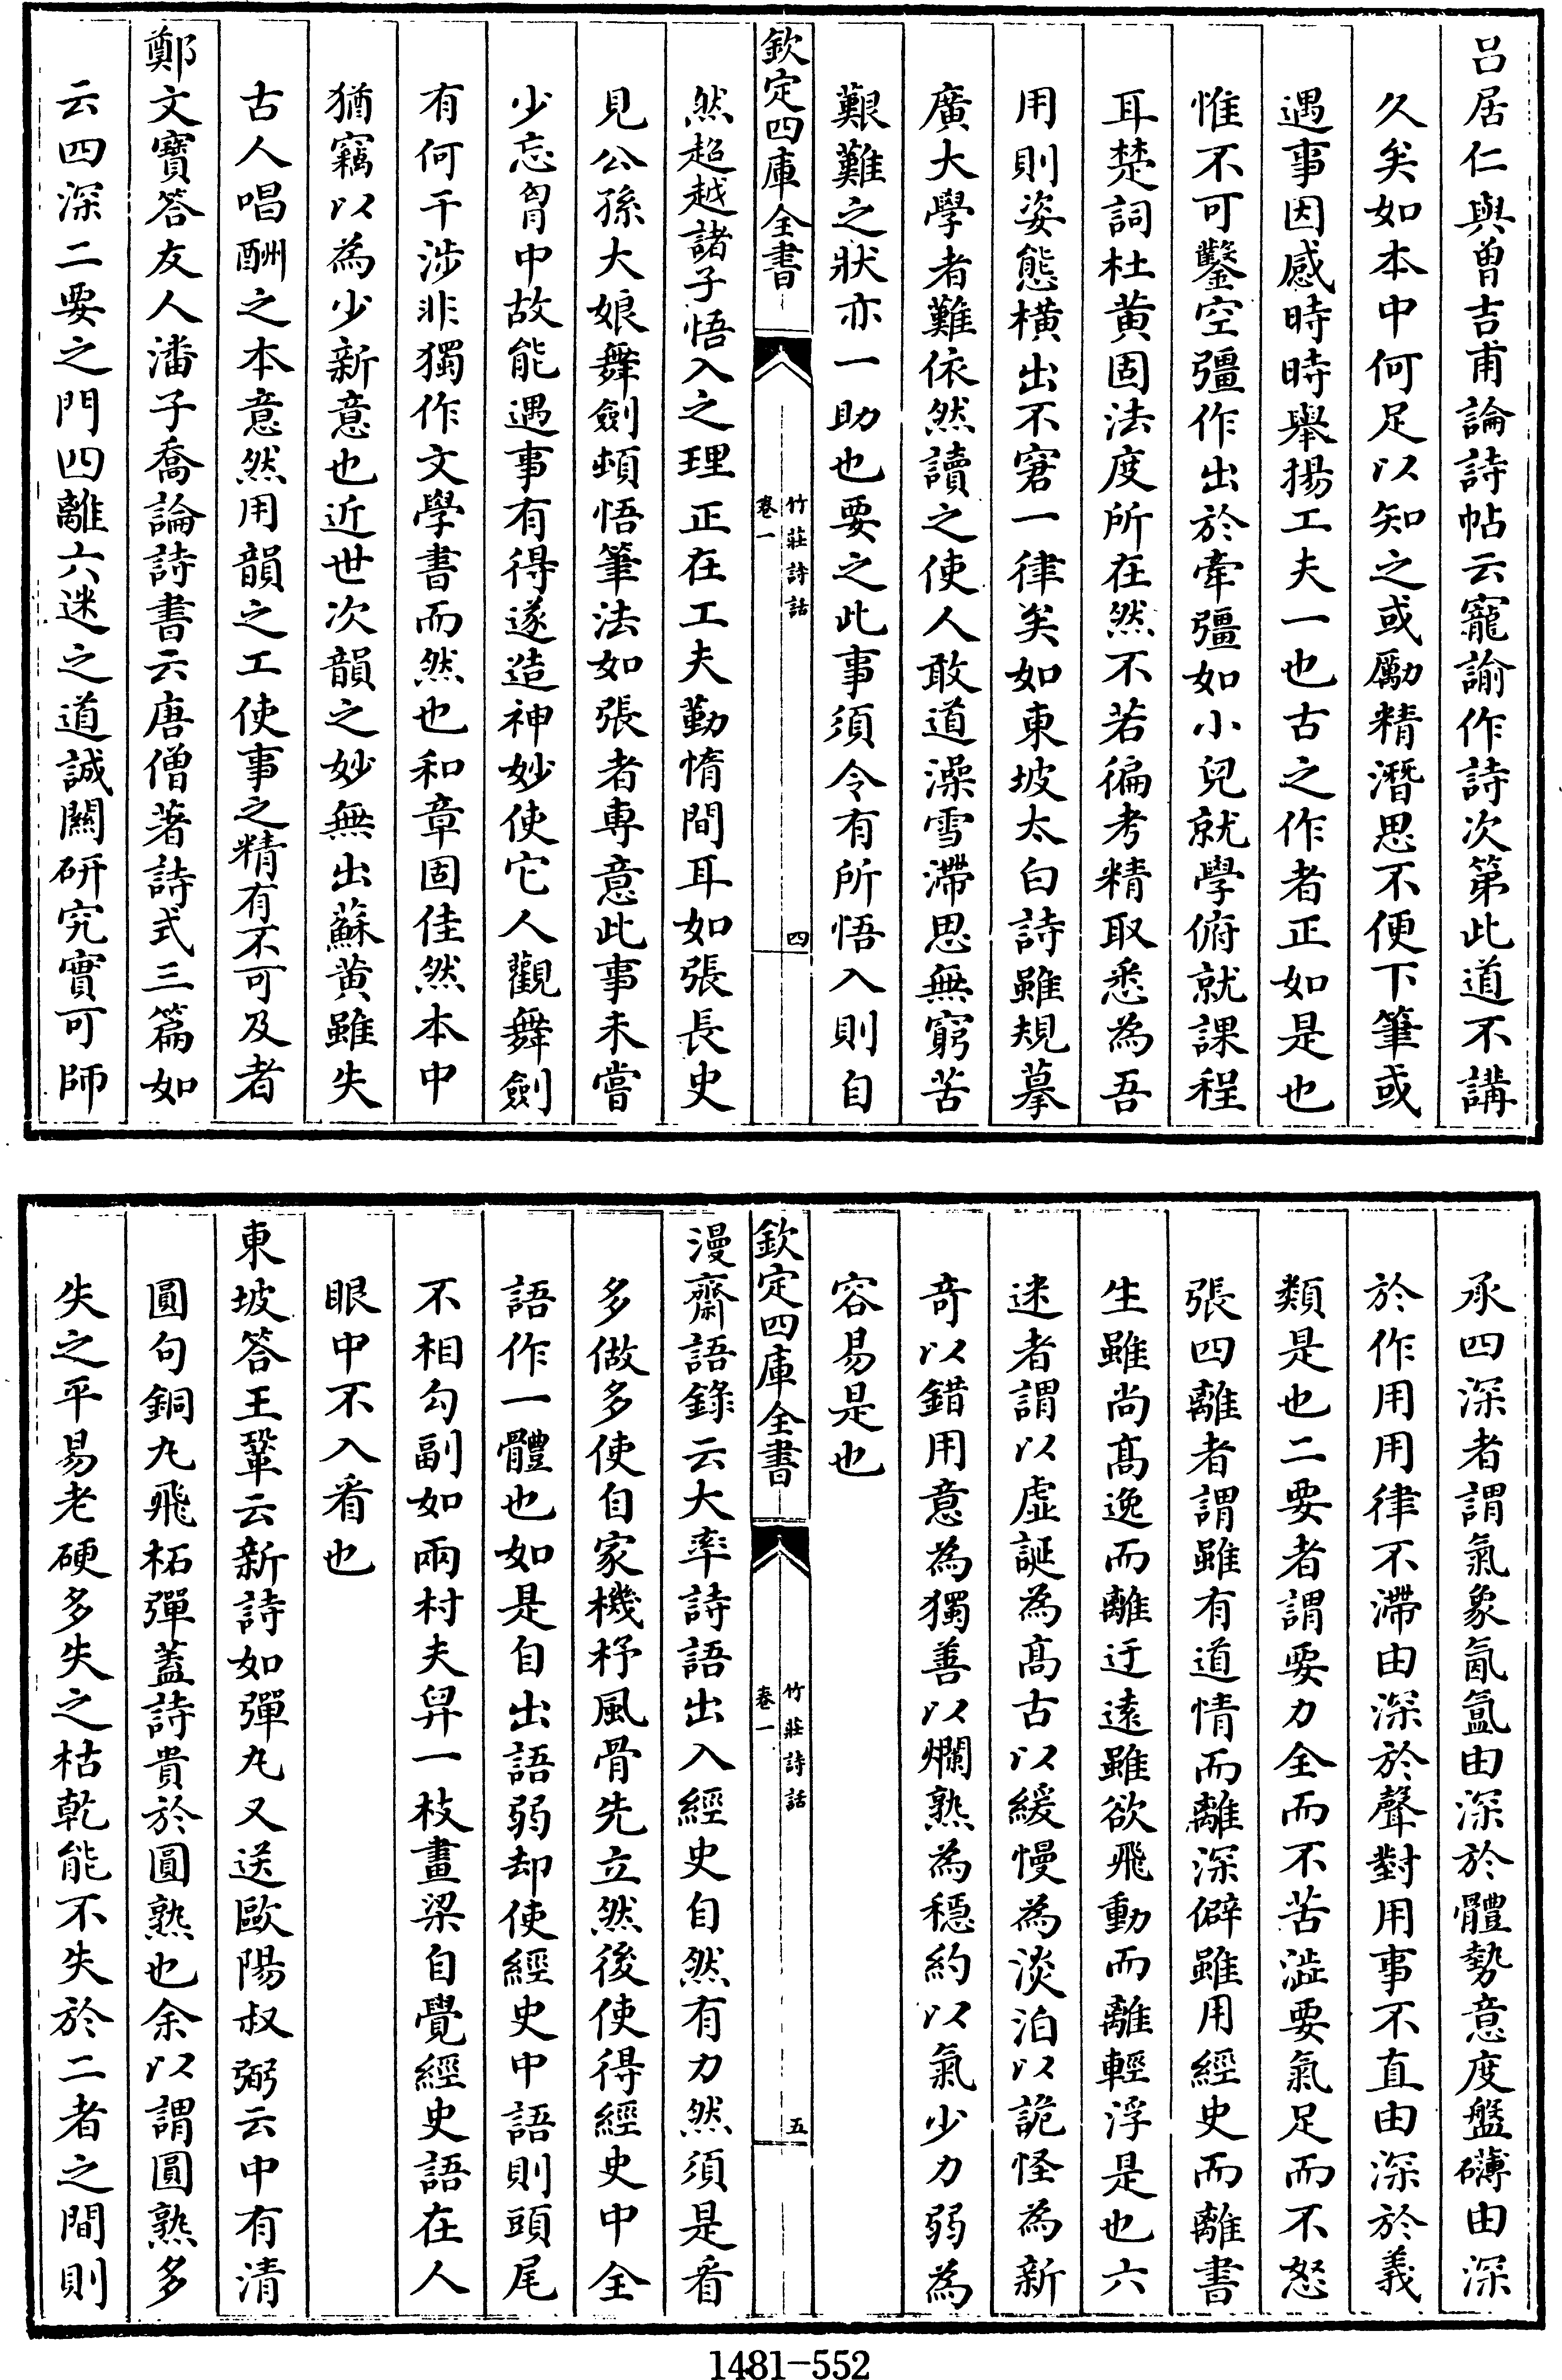 呂居仁與曽吉甫論詩帖云寵諭作詩次第此道不講
久矣如本中何足以知之或勵精潛思不便下筆或
遇事因感時時舉揚工夫一也古之作者正如是也
惟不可鑿空彊作出於牽彊如小兒就學俯就課程
耳楚詞杜黄固法度所在然不若徧考精取悉為吾
用則姿態橫出不窘一律矣如東坡太白詩雖規摹
廣大學者難依然讀之使人敢道澡雪滯思無窮苦
艱難之狀亦一助也要之此事須令有所悟入則自
欽定四庫全書
竹莊詩話
卷一
四
然超越諸子悟入之理正在工夫勤惰間耳如張長史
見公孫大娘舞劍頓悟筆法如張者専意此事未嘗
少忘胷中故能遇事有得遂造神妙使它人觀舞劍
有何干涉非獨作文學書而然也和章固佳然本中
猶竊以為少新意也近世次韻之妙無出蘇黄雖失
古人唱酬之本意然用韻之工使事之精有不可及者
鄭文寶答友人潘子喬論詩書云唐僧著詩式三篇如
云四深二要之門四離六迷之道誠闗研究實可師
承四深者謂氣象氤氳由深於體勢意度盤礴由深
於作用用律不滯由深於聲對用事不直由深於義
類是也二要者謂要力全而不苦澁要氣足而不怒
張四離者謂雖有道情而離深僻雖用經史而離書
生雖尚髙逸而離迂遠雖欲飛動而離輕浮是也六
迷者謂以虚誕為髙古以緩慢為淡泊以詭怪為新
奇以錯用意為獨善以爛熟為穏約以氣少力弱為
容易是也
欽定四庫全書
竹莊詩話
卷一
五
漫齋語錄云大率詩語出入經史自然有力然須是看
多做多使自家機杼風骨先立然後使得經史中全
語作一體也如是自出語弱却使經史中語則頭尾
不相勾副如兩村夫舁一枝畫梁自覺經史語在人
眼中不入看也
東坡答王鞏云新詩如彈丸又送歐陽叔弼云中有清
圓句銅丸飛柘彈蓋詩貴於圓熟也余以謂圓熟多
失之平易老硬多失之枯乾能不失於二者之間則
1481-552